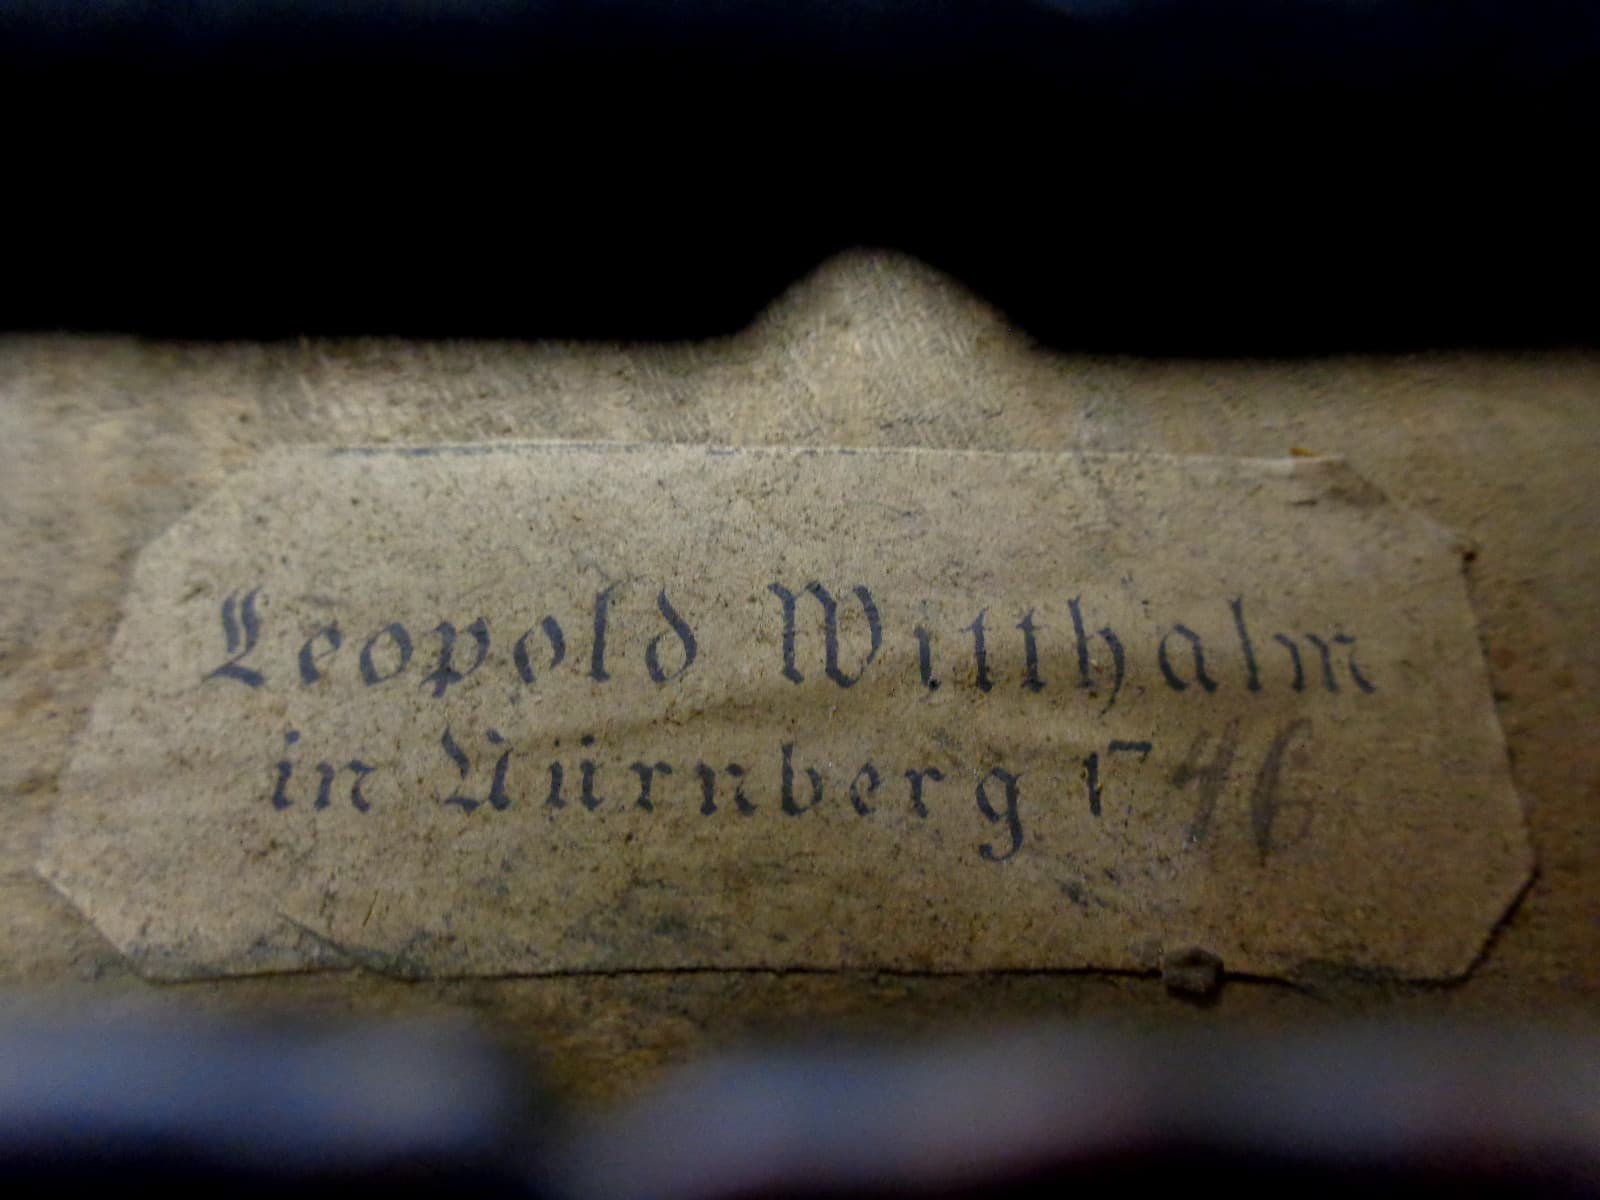 Leopold Witthalm
in Nürnberg 1746